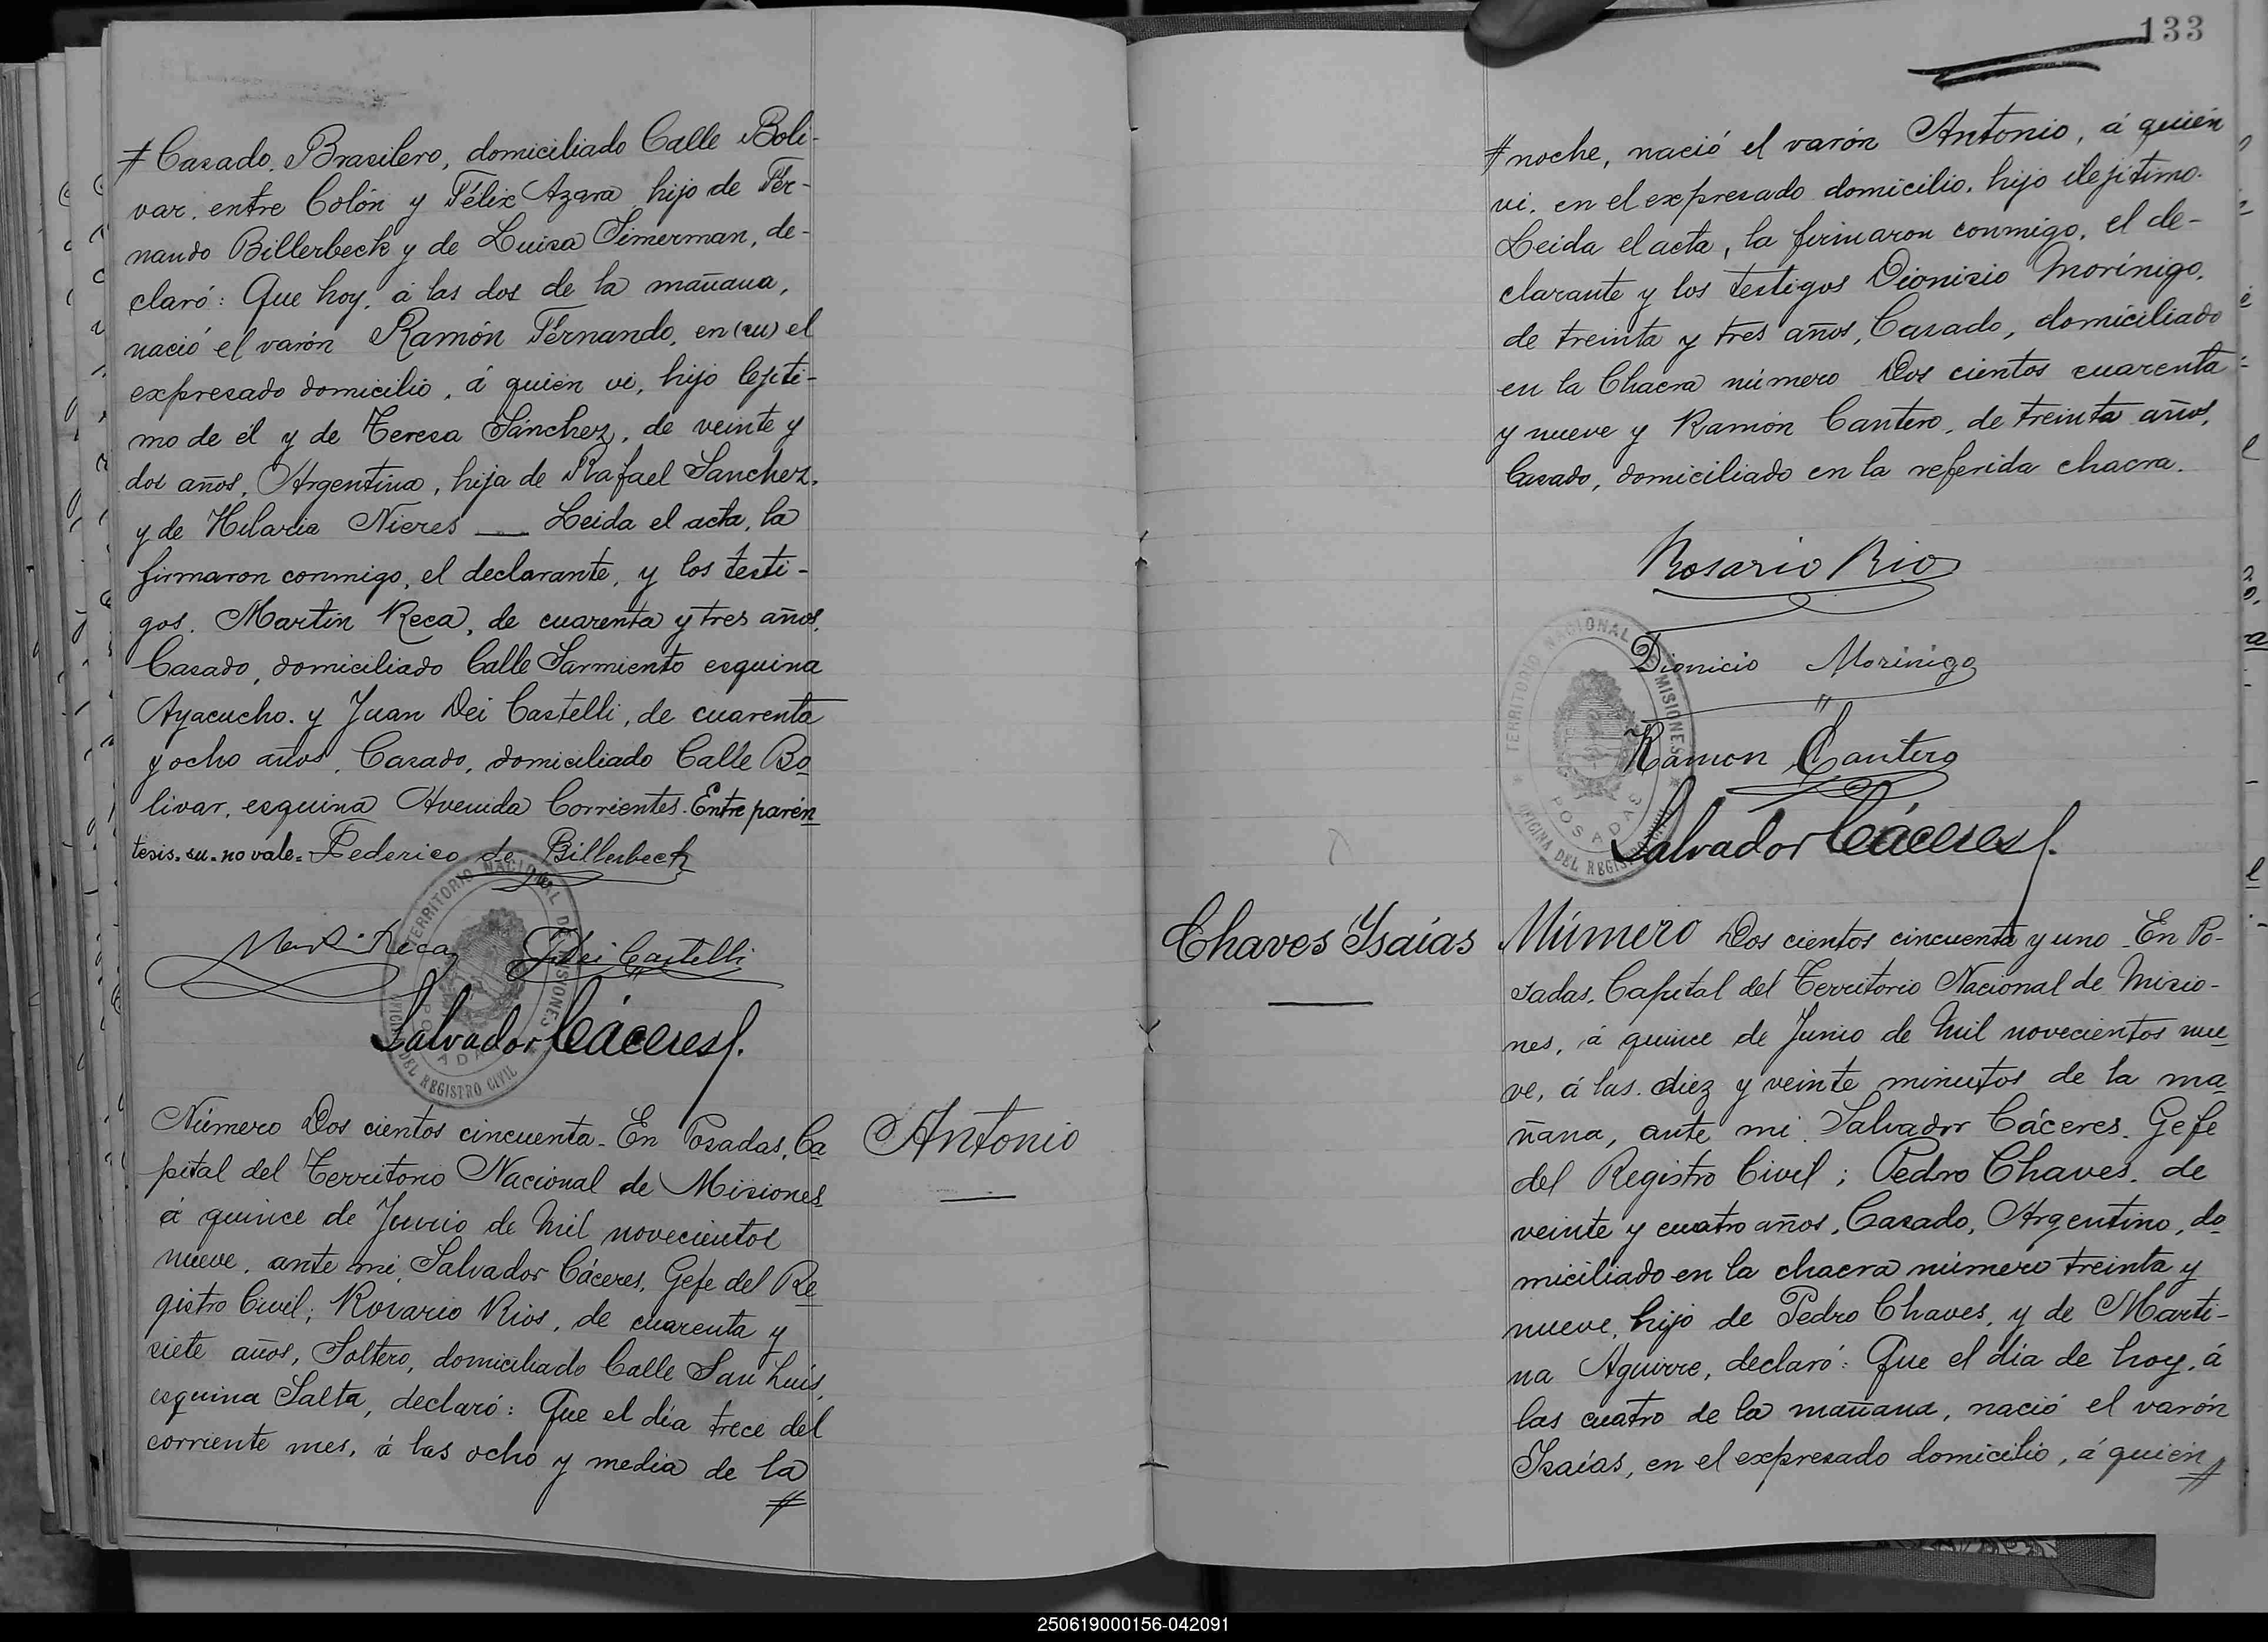 # Casado. Brasilero, domiciliado Calle Boli-
var, entre Colón y Félix Azara, hijo de Fer-
nando Billerbeck y de Luisa Simerman, de-
claró: Que hoy, á las dos de la mañana,
nació el varón Ramón Fernando, en (su) el
expresado domicilio, á quien vi, hijo lejiti-
mo de él y de Teresa Sánchez, de veinte y
dos años, Argentina, hija de Rafael Sanchez,
y de Hilaria Nieres — Leida el acta, la
firmaron conmigo, el declarante, y los testi-
gos. Martin Reca, de cuarenta y tres años,
Casado, domiciliado Calle Sarmiento esquina
Ayacucho. y Juan Dei Castelli, de cuarenta
y ocho años, Casado, domiciliado Calle Bo
livar, esquina Avenida Corrientes. Entre parén
tesis. su. no vale= Federico de Billerbeck
Martin Reca J Dei Castelli
TERRITORIO NACIONAL DE MISIONES
OFICINA DEL REGISTRO CIVIL
POSADAS
Salvador Cáceres
Antonio
Número Dos cientos cincuenta_ En Posadas, Ca
pital del Territorio Nacional de Misiones
á quince de Junio de Mil novecientos
nueve, ante mi, Salvador Cáceres, Gefe del Re
gistro Civil; Rosario Rios, de cuarenta y
siete años, Soltero, domiciliado Calle San Luis,
esquina Salta, declaró: Que el día trece del
corriente mes, á las ocho y media de la
#
133
# noche, nació el varón Antonio, á quien
vi, en el expresado domicilio, hijo ilejitimo.
Leida el acta, la firmaron conmigo, el de-
clarante y los testigos Dionisio Morínigo,
de treinta y tres años, Casado, domiciliado
en la Chacra número Dos cientos cuarenta
y nueve y Ramón Cantero, de treinta años,
Casado, domiciliado en la referida chacra.
Rosario Rio
Dionicio Morinigo
Ramon Cantero
TERRITORIO NACIONAL DE MISIONES
OFICINA DEL REGISTRO CIVIL
POSADAS
Salvador Cáceres
Chaves Isaías
Número Dos cientos cincuenta y uno_ En Po-
sadas, Capital del Territorio Nacional de Misio-
nes, á quince de Junio de Mil novecientos nue
ve, á las diez y veinte minutos de la ma
ñana, ante mi Salvador Cáceres. Gefe
del Registro Civil; Pedro Chaves, de
veinte y cuatro años, Casado, Argentino, do
miciliado en la chacra número treinta y
nueve, hijo de Pedro Chaves, y de Marti-
na Aguirre, declaró: Que el día de hoy, á
las cuatro de la mañana, nació el varón
Isaías, en el expresado domicilio, á quien
#
250619000156-042091